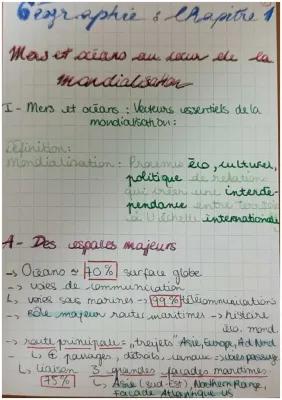 Géographie : Chapitre 1
Mers et océans au cœur de la
mondialisation
I - Mers et océans : Vecteurs essentiels de la
mondialisation :
Définition :
Mondialisation : Processus éco, culturel,
politique de relation
qui créer une interdé-
pendance entre territoire
à l'échelle internationale
A - Des espaces majeurs
-> Océans ≈ 70% surface globe
-> voies de communication
↳ voies sous marines -> 99% télécommunications
-> Rôle majeur routes maritimes -> histoire
éco. mond.
-> route principale = "trajets" Asie, Europe, Ad Nord
↳ passages, détroits, canaux ->
↳ liaison 3 grandes façades maritimes
75% ↳ Asie (Sud-Est), Northern Range,
Façade Atlantique US